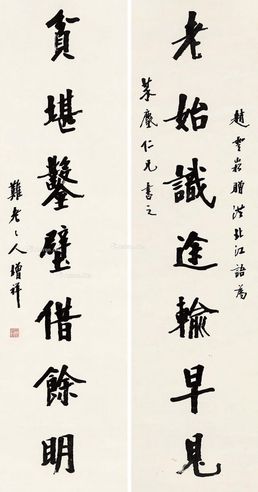 老始識途輸早見
趙雲崧贈洪北江語為
仁兄書之
貧堪鑿壁借餘明
難老〻人增祥